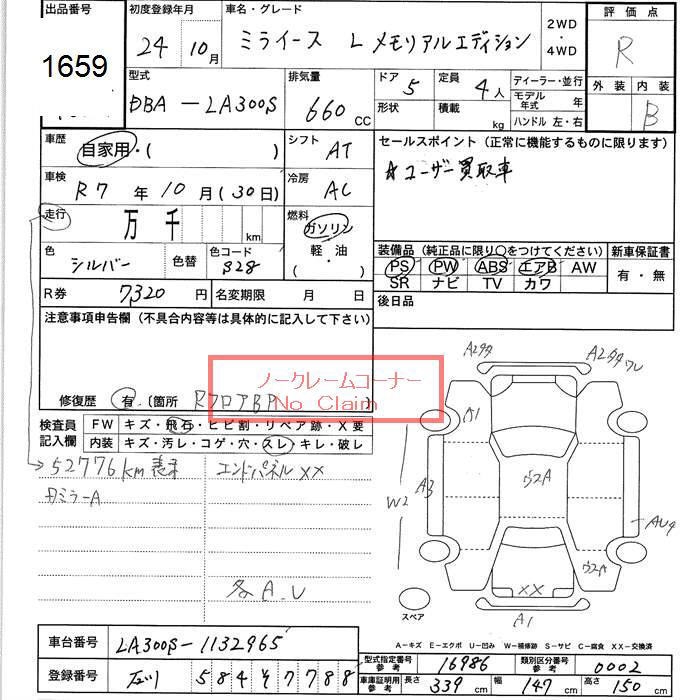 出品番号
1659
初度登録年月
24年 10月
車名・グレード
ミライース L メモリアルエディション
2WD
・
4WD
評価点
R
外装 内装
B
型式
DBA-LA300S
排気量
660 CC
ドア 5
形状
定員 4人
積載 kg
ディーラー・並行
モデル年式 年
ハンドル 左・右
車歴
自家用・( )
シフト
AT
セールスポイント(正常に機能するものに限ります)
☆ユーザー買取車
車検
R7年 10月(30日)
冷房
AC
走行
万 千 km
燃料
ガソリン
軽・油
( )
色
シルバー
色替
色コード
S28
装備品(純正品に限り○をつけてください)
新車保証書
PS PW ABS エアB AW
有・無
SR ナビ TV カワ
R券
7320円
名変期限 月 日
後日品
注意事項申告欄(不具合内容等は具体的に記入して下さい)
ノークレームコーナー
No Claim
修復歴 有・(箇所 RフロアBP
検査員
記入欄
FW キズ・飛石・ヒビ割・リペア跡・X要
内装 キズ・汚レ・コゲ・穴・スレ・キレ・破レ
52776km表示
エンドパネルXX
ミラーA
各A.U
A2タタ
A2タタワレ
A1
ウ2A
W2
A3
AU4
ウ2A
XX
A1
スペア
A-キズ E-エクボ U-凹み W-補修跡 S-サビ C-腐食 XX-交換済
車台番号
LA300S-1132965
登録番号
石川 584 そ 7788
型式指定番号
参考
16986
類別区分番号
参考
0002
車庫証明用
参考
長さ 339cm
幅 147cm
高さ 150cm